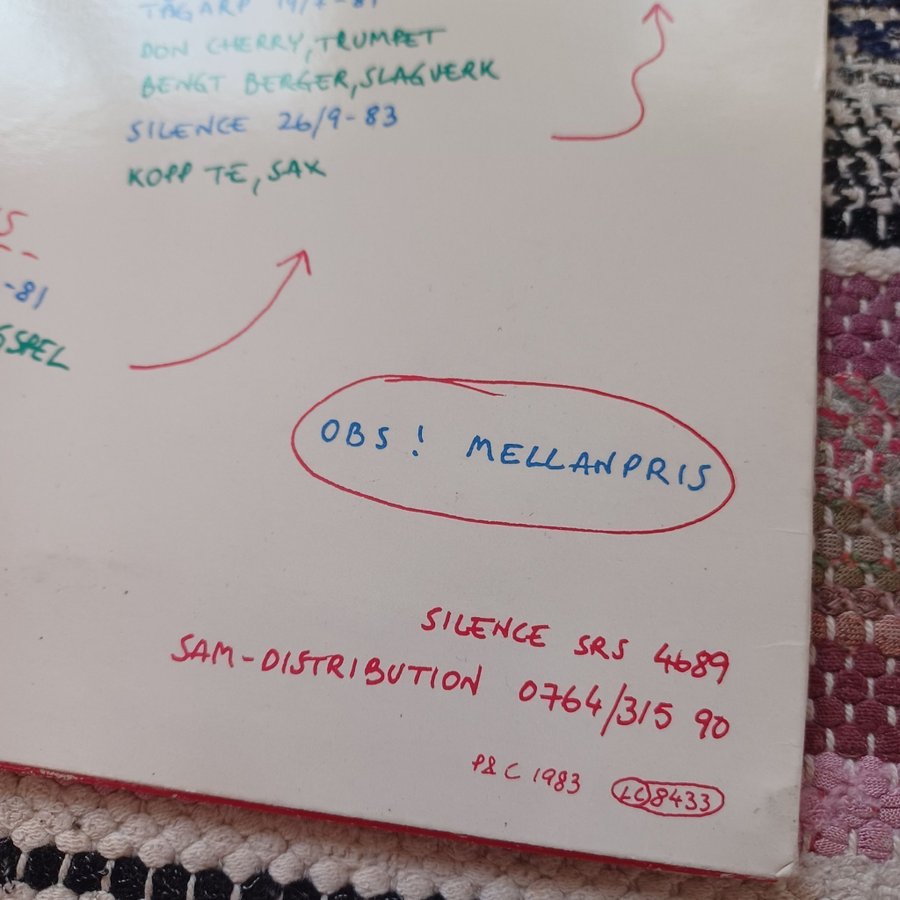 TÅGARP 19/7-81
DON CHERRY, TRUMPET
BENGT BERGER, SLAGVERK
SILENCE 26/9-83
KOPP TE, SAX
-81
SPEL
OBS! MELLANPRIS
SILENCE SRS 4689
SAM-DISTRIBUTION 0764/315 90
P&C 1983 LC 8433